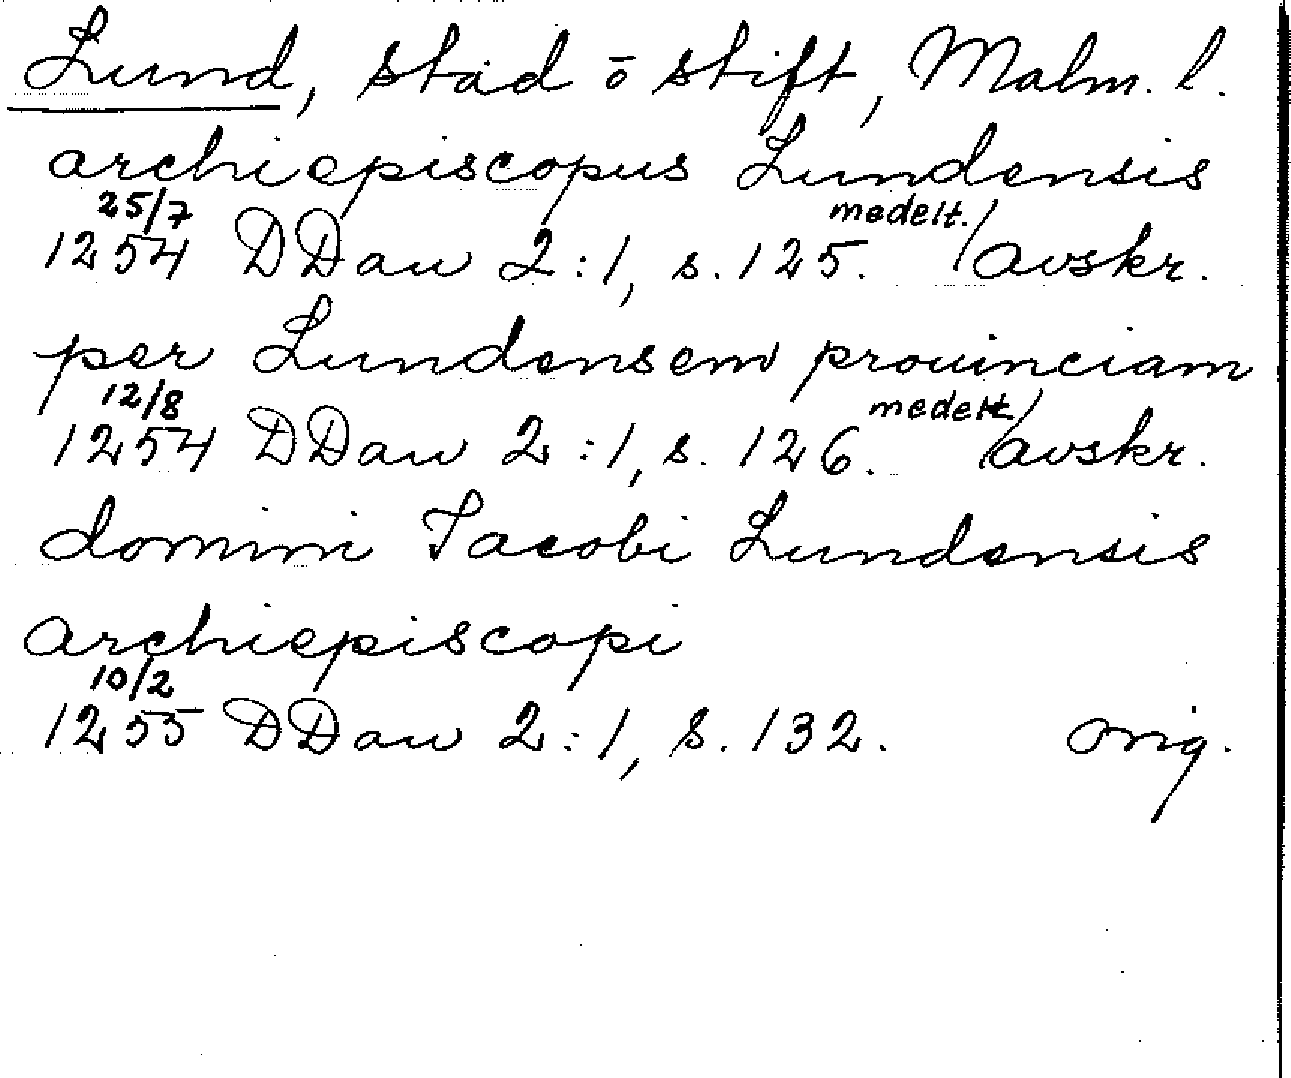 Lund, stad ō stift, Malm. l.
archiepiscopus Lundensis
25/7 medelt.
1254 DDan 2:1, s. 125. /avskr.
per Lundensem prouinciam
12/8 medelt.
1254 DDan 2:1, s. 126. /avskr.
domini Jacobi Lundensis
archiepiscopi
10/2
1255 DDan 2:1, s. 132. orig.